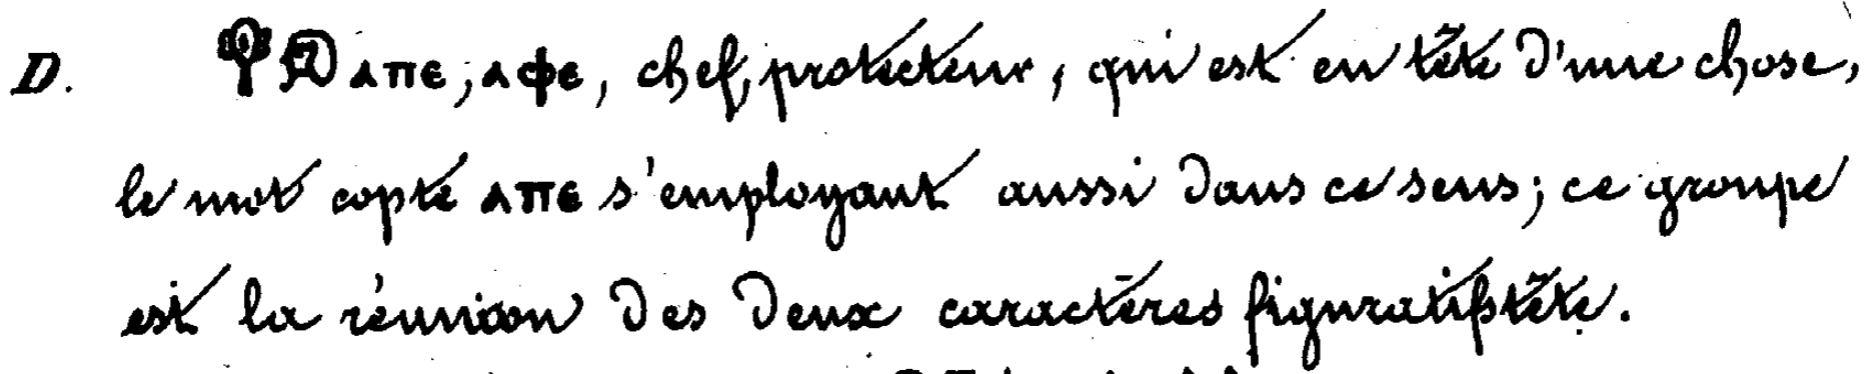 D. 𓁷𓁶 ⲁⲡⲉ, ⲁⲫⲉ, chef, protecteur, qui est en tête d'une chose,
le mot copte ⲁⲡⲉ s'employant aussi dans ce sens; ce groupe
est la réunion des deux caractères figuratifs tête.